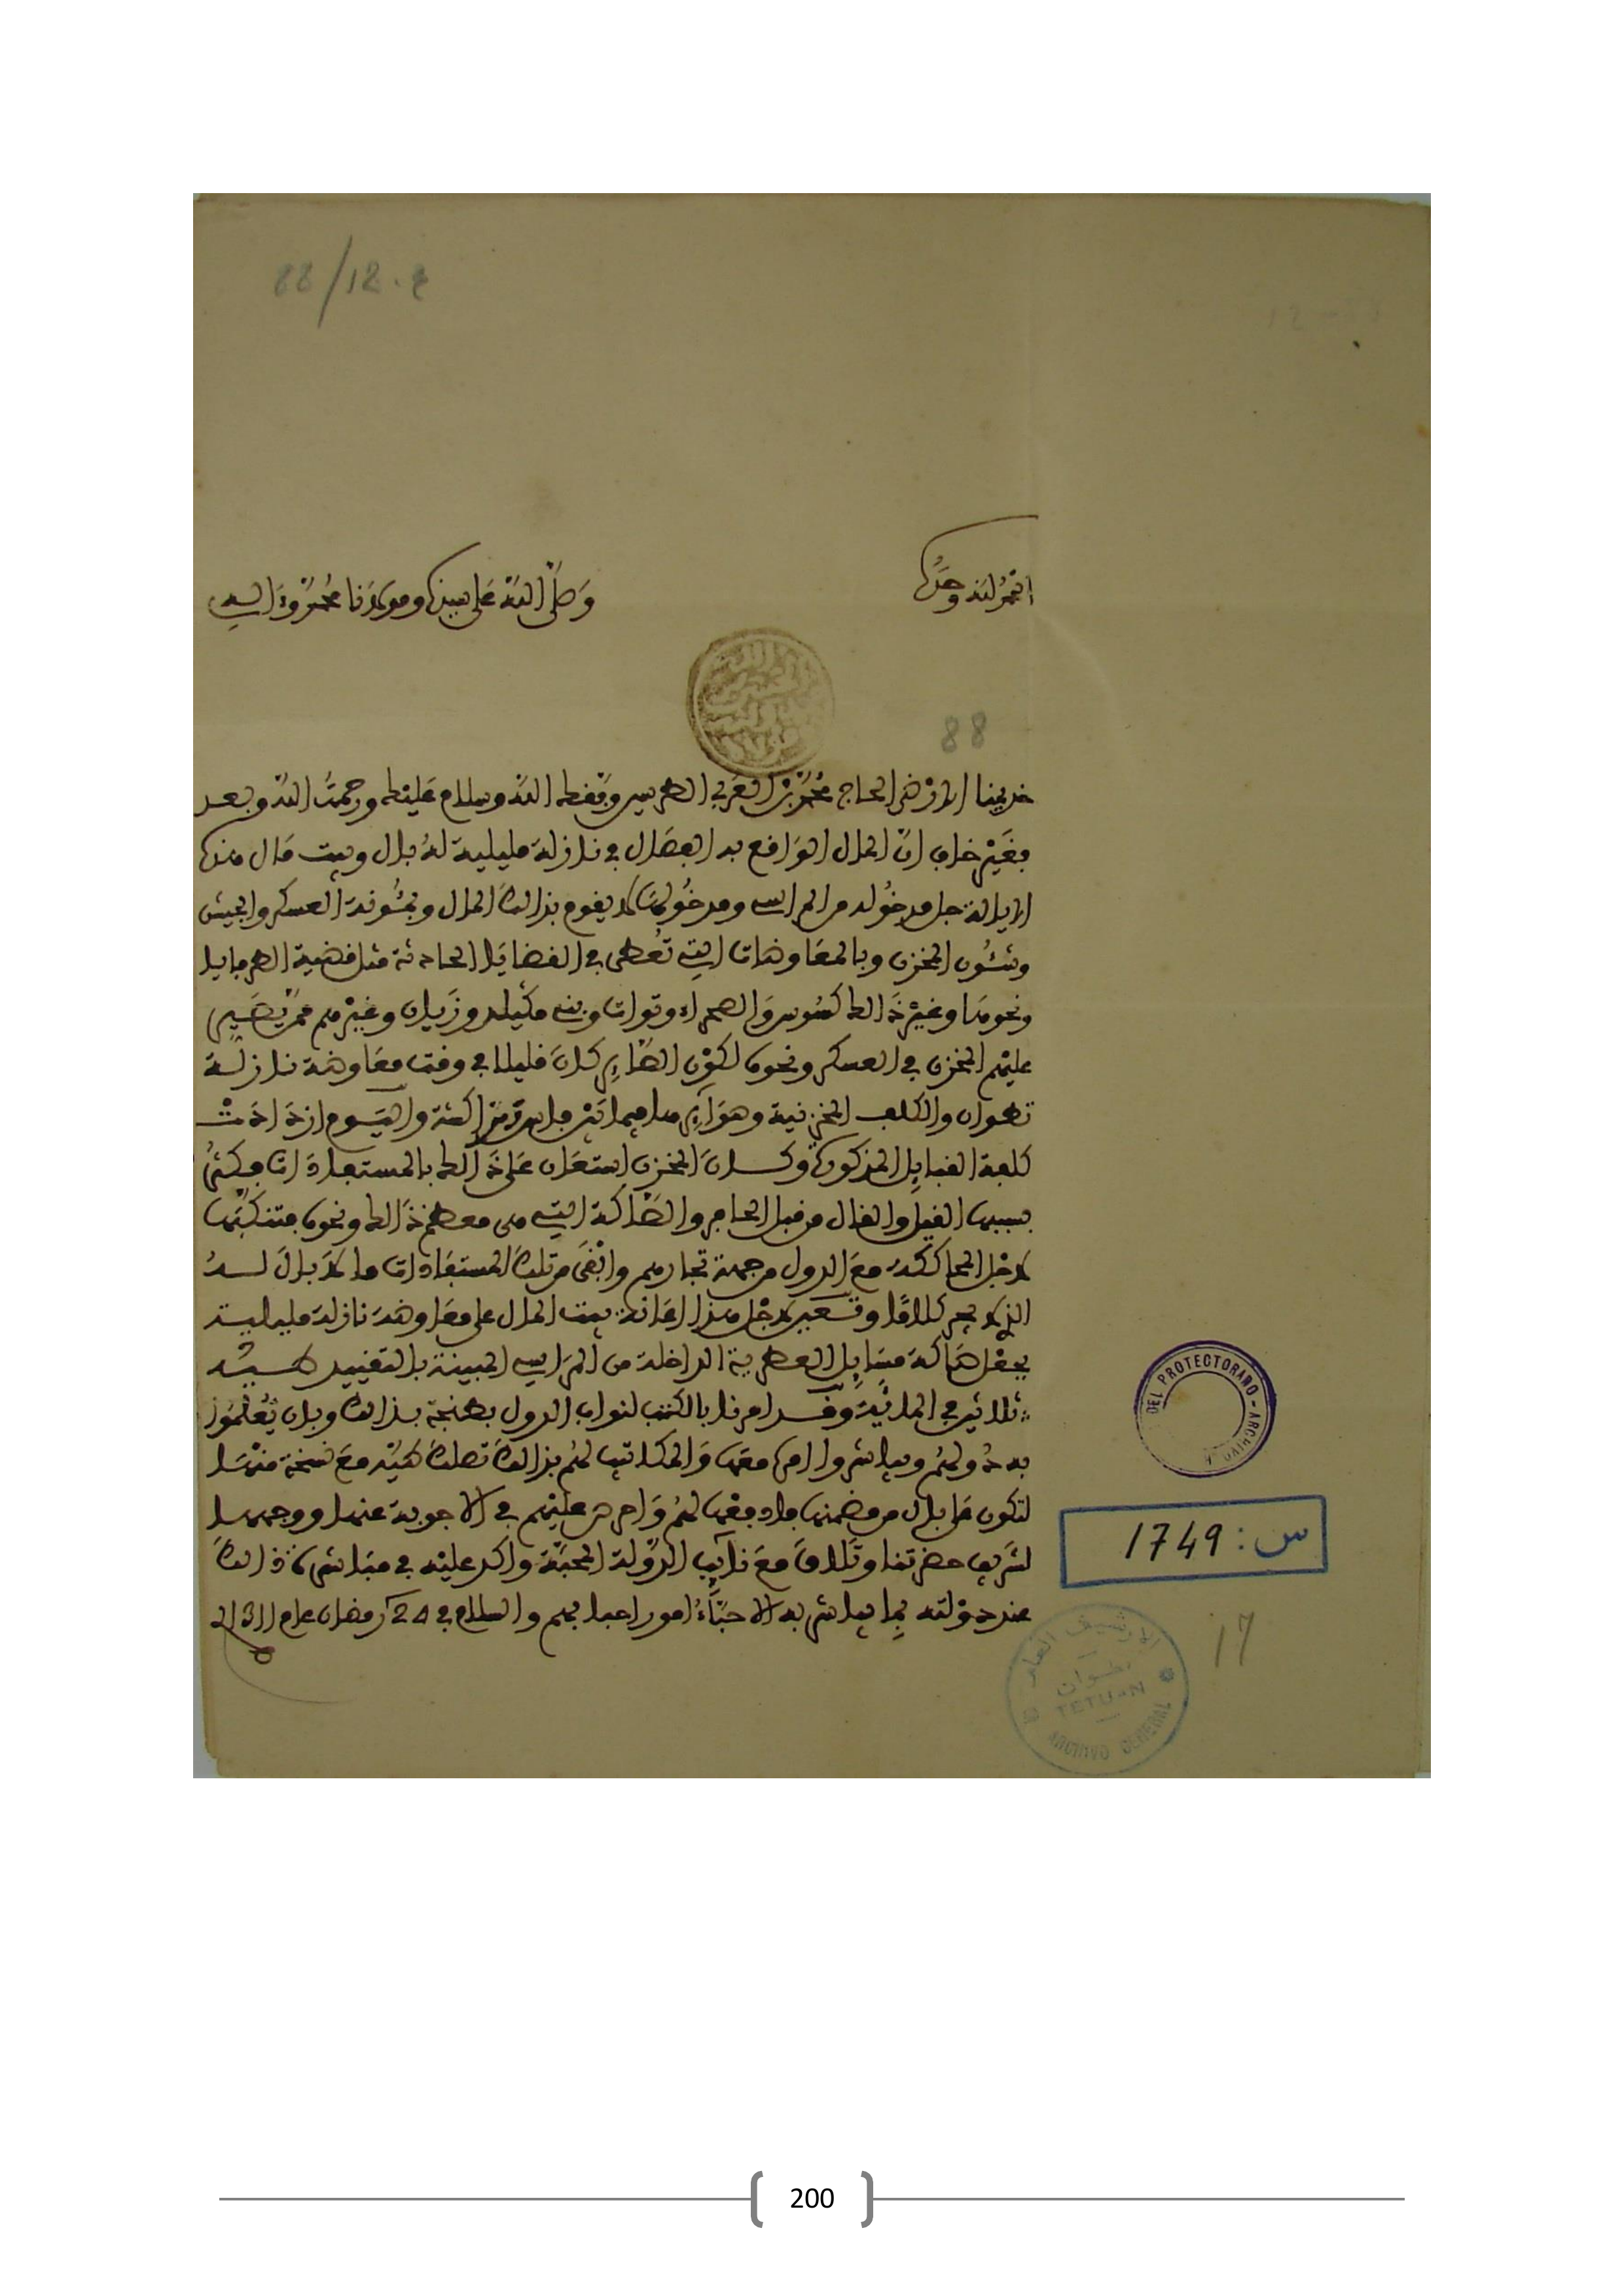 88/12.e
الحمد لله وحده
وصلى الله على سيدنا ومولانا محمد وآله
88
خديمنا الأرضى الحاج محمد بن العربي الطريس وفقك الله وسلام عليك ورحمت الله وبعد
فغير خاف أن المال الواقع به الفصال في نازلة مليلية له بال وبيت مال هذه
الإيالة جل مدخوله من المراسي ومدخولها لا يقوم بذلك المال وبمئونة العسكر والجيش
وشئون المخزن وبالمعاوضات التي تعطى في القضايا الحادثة مثل قضية الطرفايا
ونحوها وغير ذالك كسوس والصحراء وتوات وبني مكيلد وزيان وغيرهم ممن يصير
عليهم المخزن في العسكر ونحوه لكون الصائر كان قليلا في وقت معاوضة نازلة
تطوان والكلف المخزنية وهوائر
كلفة القبايل المذكورة وكان المخزن استعان على ذالك بالمستفادات فكثر
بسببها القيل والقال من قبل العامة والصاكة التي هي معظم ذالك ونحوها فتركها
لأجل المحاككة مع الدول من جهة تجارهم وأبقى من تلك المستفادات ما لا بال له
الذي لا يجر كلاما وتعين لأجل هذا إعانة بيت المال على معاوضة نازلة مليلية
بجعل صاكة مسايل العطرية الداخلة من المراسي المبينة بالتقييد طيه
ثلاثين في المائة وقد أمرنا بالكتب لنواب الدول بطنجة بذالك وبأن يعلموا
به دولهم ويباشروا أمره معها والمكاتيب لهم بذالك تصلك طيه مع نسخة منها
لتكون على بال من مضمنها فادفعها لهم واحرص عليهم في الأجوبة عنها ووجهها
لشريف حضرتنا وتلاق مع نائب الدولة المحبة وأكد عليه في مباشرة ذالك
عند دولته بما يباشر به الأحباء أمور أحبابهم والسلام في 24 رمضان عام 1311
DEL PROTECTORADO - ARCHIVO
س: 1749
17
الأرشيف العام
تطوان
TETUAN
ARCHIVO GENERAL
200